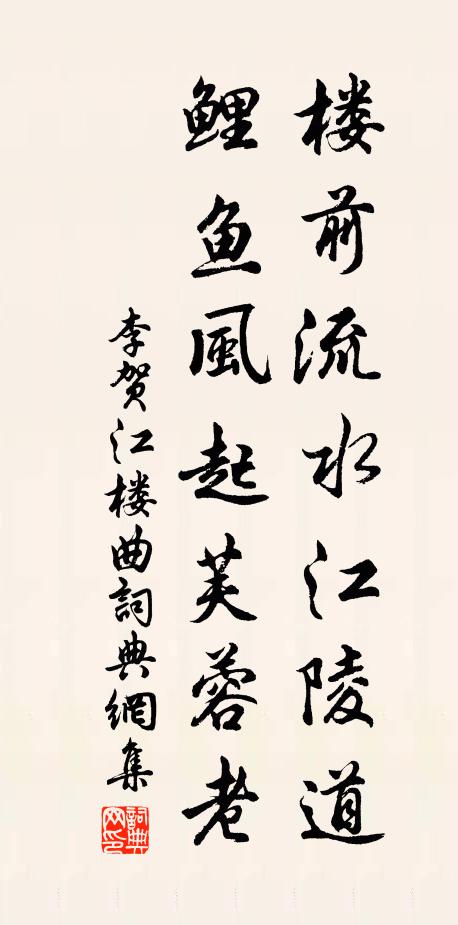 楼前流水江陵道
鲤鱼風起芙蓉老
李贺江楼曲詞典網集
詞典网印